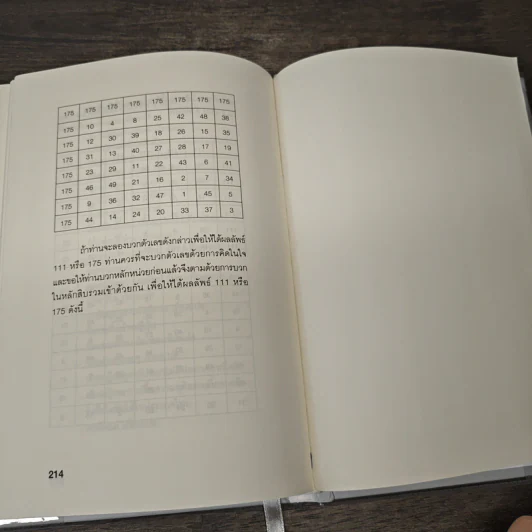 175 175 175 175 175 175 175 175
175 10 4 8 25 42 48 38
175 12 30 39 18 26 15 35
175 31 13 40 27 28 17 19
175 23 29 11 22 43 6 41
175 46 49 21 16 2 7 34
175 9 36 32 47 1 45 5
175 44 14 24 20 33 37 3
ถ้าท่านจะลองบวกตัวเลขดังกล่าวเพื่อให้ได้ผลลัพธ์
111 หรือ 175 ท่านควรที่จะบวกตัวเลขด้วยการคิดในใจ
และขอให้ท่านบวกหลักหน่วยก่อนแล้วจึงตามด้วยการบวก
ในหลักสิบรวมเข้าด้วยกัน เพื่อให้ได้ผลลัพธ์ 111 หรือ
175 ดังนี้
214